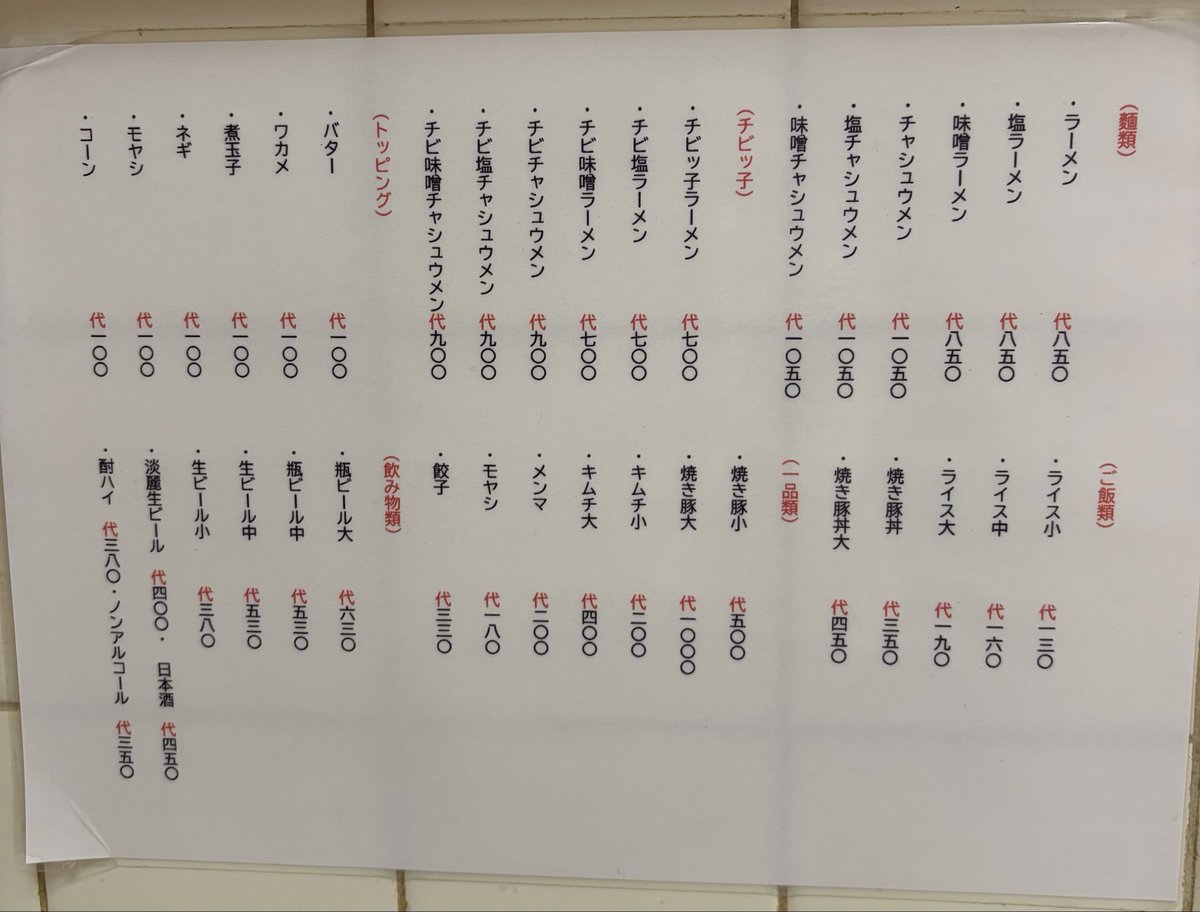 (麺類)
・ラーメン 代八五〇
・塩ラーメン 代八五〇
・味噌ラーメン 代八五〇
・チャシュウメン 代一〇五〇
・塩チャシュウメン 代一〇五〇
・味噌チャシュウメン 代一〇五〇
(チビッ子)
・チビッ子ラーメン 代七〇〇
・チビ塩ラーメン 代七〇〇
・チビ味噌ラーメン 代七〇〇
・チビチャシュウメン 代九〇〇
・チビ塩チャシュウメン 代九〇〇
・チビ味噌チャシュウメン代九〇〇
(トッピング)
・バター 代一〇〇
・ワカメ 代一〇〇
・煮玉子 代一〇〇
・ネギ 代一〇〇
・モヤシ 代一〇〇
・コーン 代一〇〇
(ご飯類)
・ライス小 代一三〇
・ライス中 代一六〇
・ライス大 代一九〇
・焼き豚丼 代三五〇
・焼き豚丼大 代四五〇
(一品類)
・焼き豚小 代五〇〇
・焼き豚大 代一〇〇〇
・キムチ小 代二〇〇
・キムチ大 代四〇〇
・メンマ 代二〇〇
・モヤシ 代一八〇
・餃子 代三三〇
(飲み物類)
・瓶ビール大 代六三〇
・瓶ビール中 代五三〇
・生ビール中 代五三〇
・生ビール小 代三八〇
・淡麗生ビール 代四〇〇・ 日本酒 代四五〇
・酎ハイ 代三八〇・ノンアルコール 代三五〇